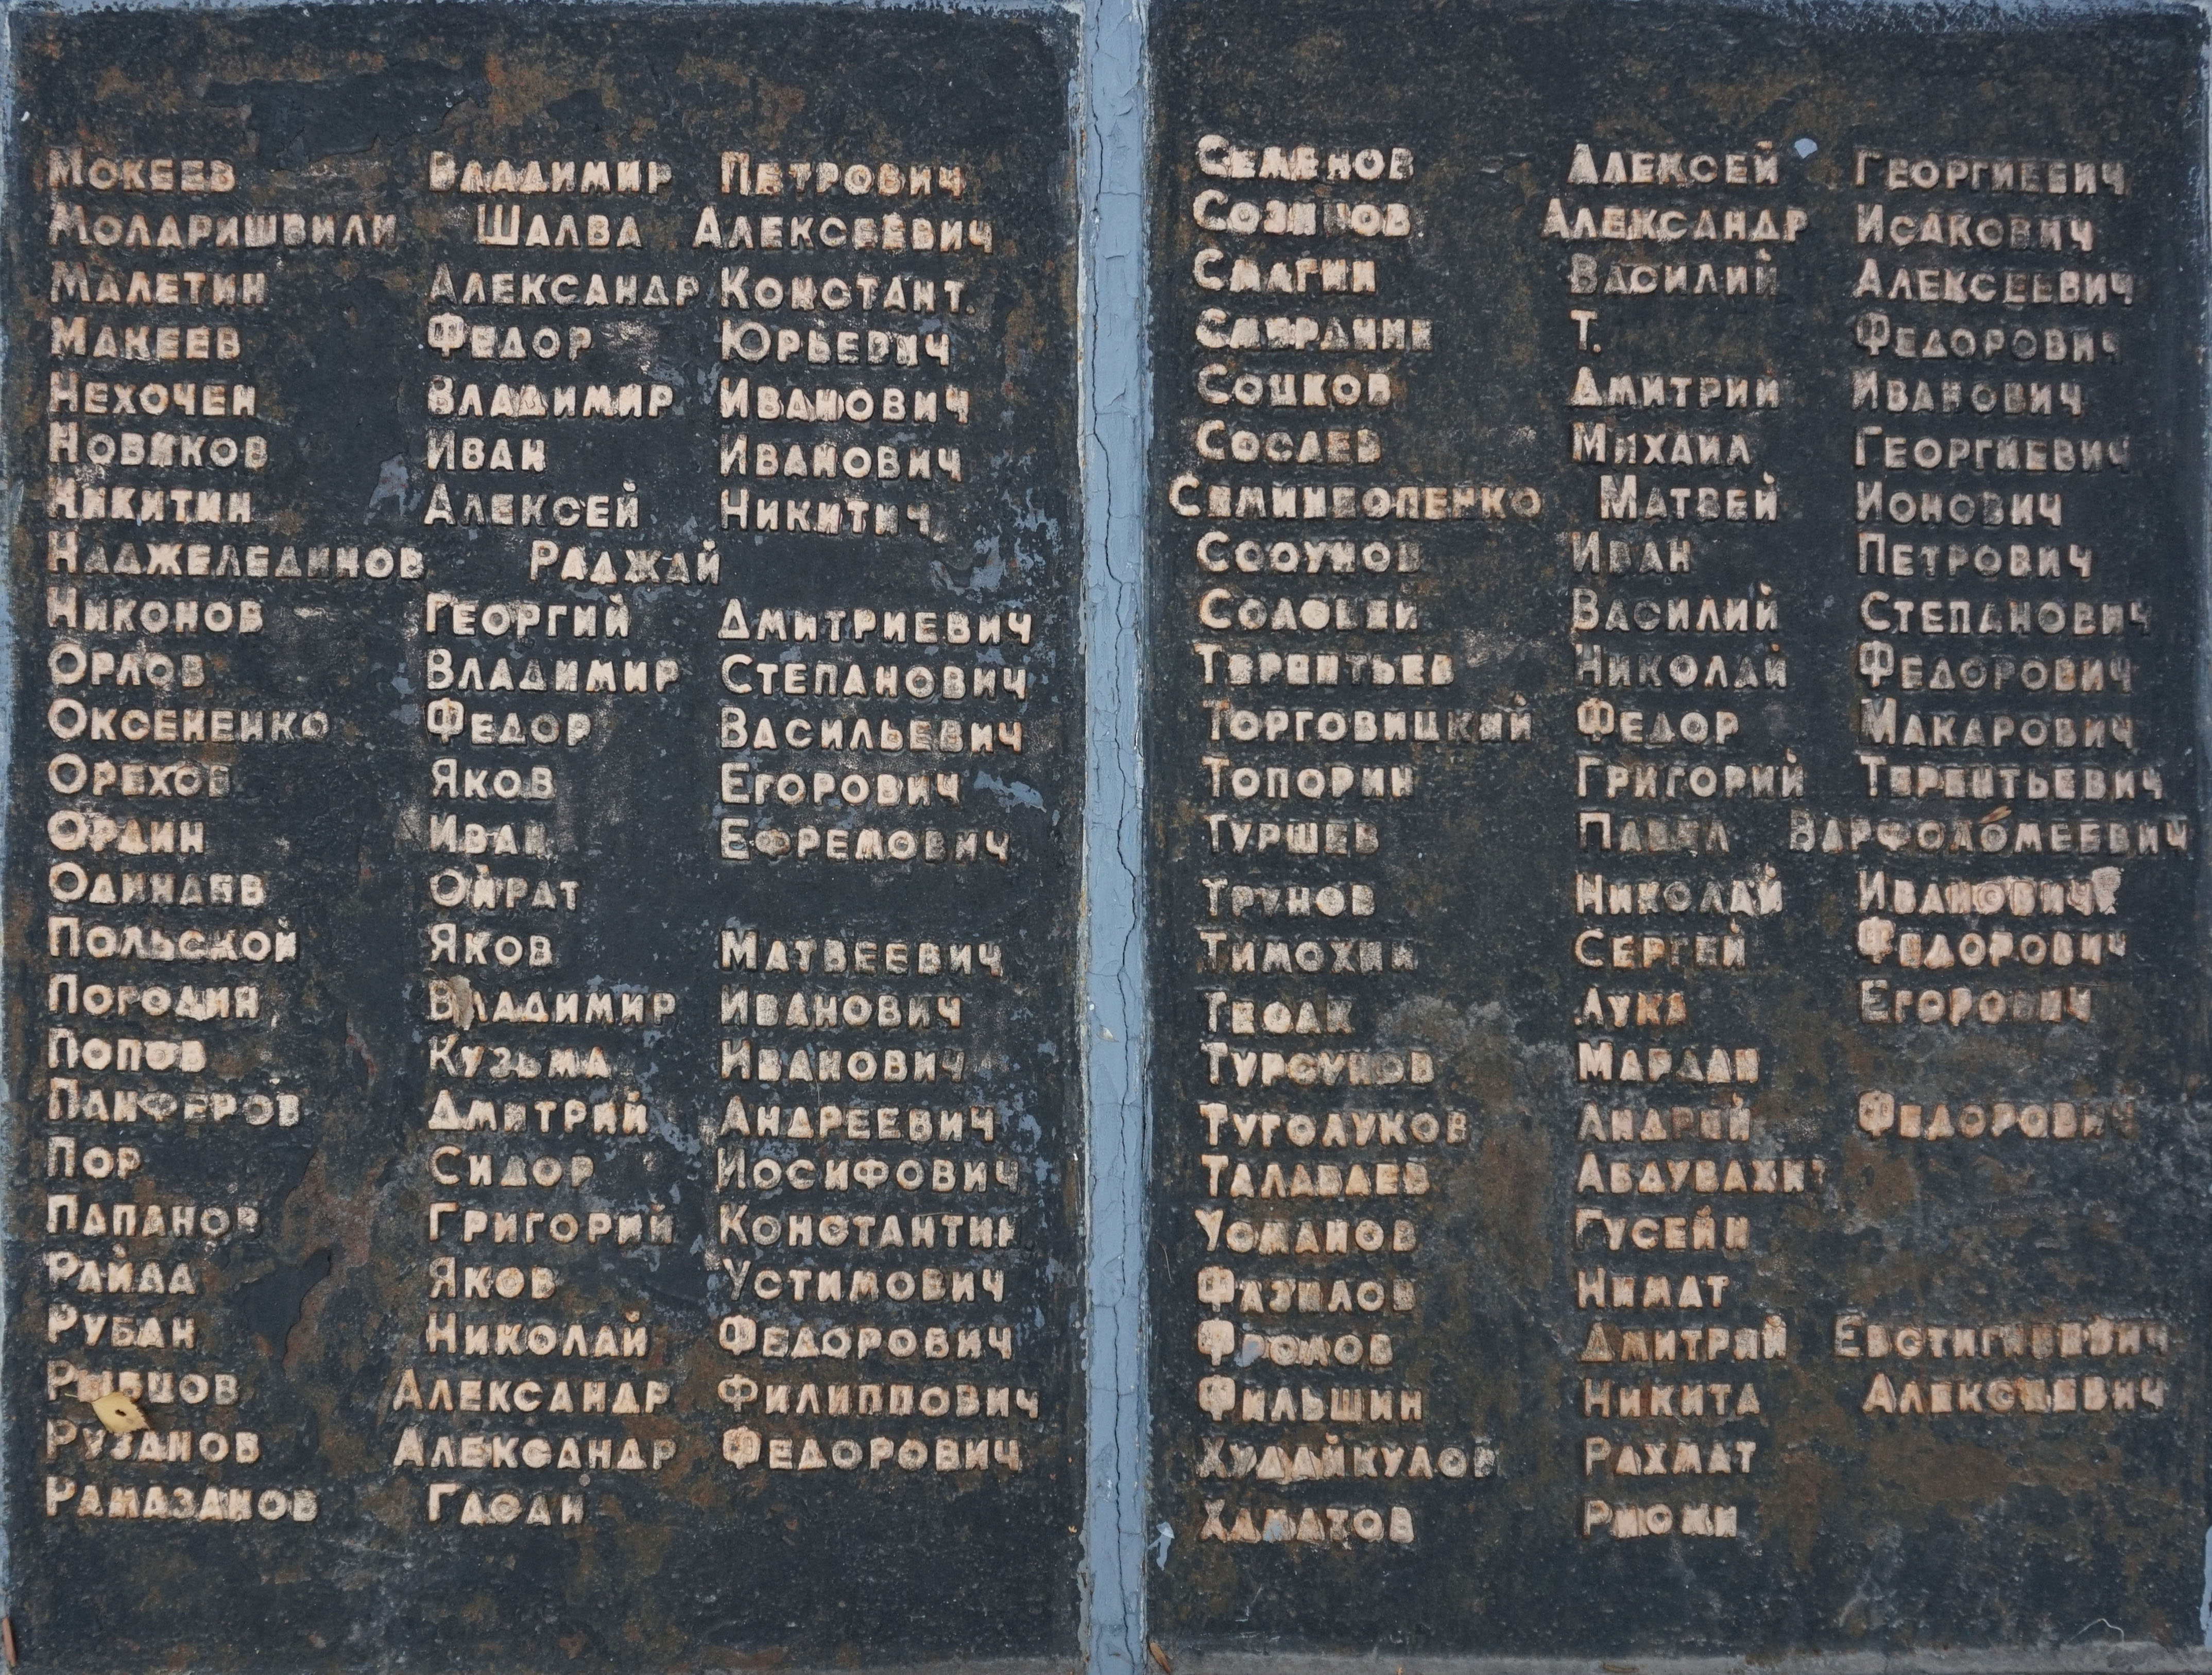 Мокеев Владимир Петрович
Моларишвили Шалва Алексеевич
Малетин Александр Констант.
Макеев Федор Юрьевич
Нехочен Владимир Иванович
Новиков Иван Иванович
Никитин Алексей Никитич
Наджелединов Раджай
Никонов Георгий Дмитриевич
Орлов Владимир Степанович
Оксененко Федор Васильевич
Орехов Яков Егорович
Ордин Иван Ефремович
Одинаев Ойрат
Польской Яков Матвеевич
Породин Владимир Иванович
Попов Кузьма Иванович
Панферов Дмитрий Андреевич
Пор Сидор Иосифович
Папанов Григорий Константин
Райда Яков Устимович
Рубан Николай Федорович
Рыбцов Александр Филиппович
Рузанов Александр Федорович
Рамазанов Гасан
Семенов Алексей Георгиевич
Созинов Александр Исакович
Смагин Василий Алексеевич
Т. Федорович
Соцков Дмитрий Иванович
Сослев Михаил Георгиевич
Матвей Ионович
Иван Петрович
Соловей Василий Степанович
Терентьев Николай Федорович
Торговицкий Федор Макарович
Топорин Григорий Терентьевич
Туршев Павел Варфоломеевич
Трунов Николай Иванович
Тимохин Сергей Федорович
Лука Егорович
Турсунов Мардан
Туголуков Андрей Федорович
Абдувахит
Усманов Гусейн
Фазилов Нимат
Фромов Дмитрий Евстигнеевич
Фильшин Никита Алексеевич
Худайкулов Рахмат
Хаматов